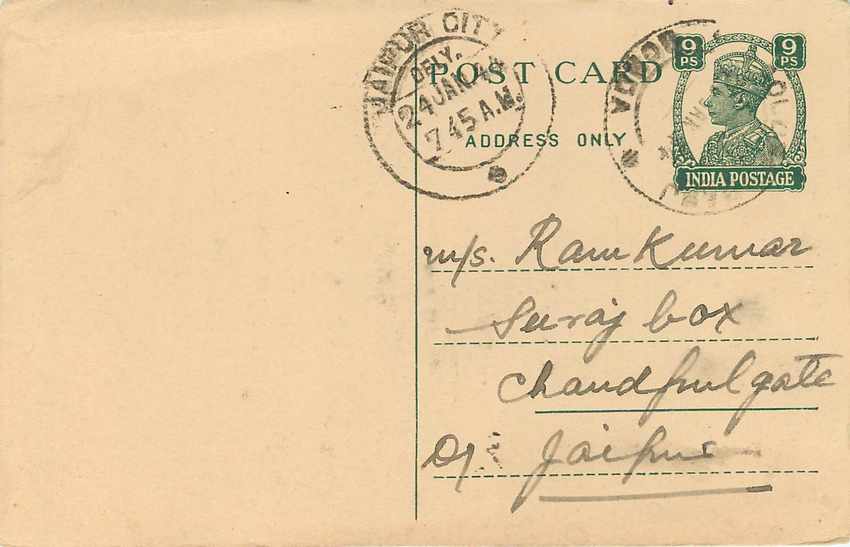 JAIPUR CITY
DELY.
24 JAN. 44
7.45 A.M.
POST CARD
ADDRESS ONLY
9 PS 9 PS
INDIA POSTAGE
M/s. Ram Kumar
Suraj box
Chandpul gate
Jaipur